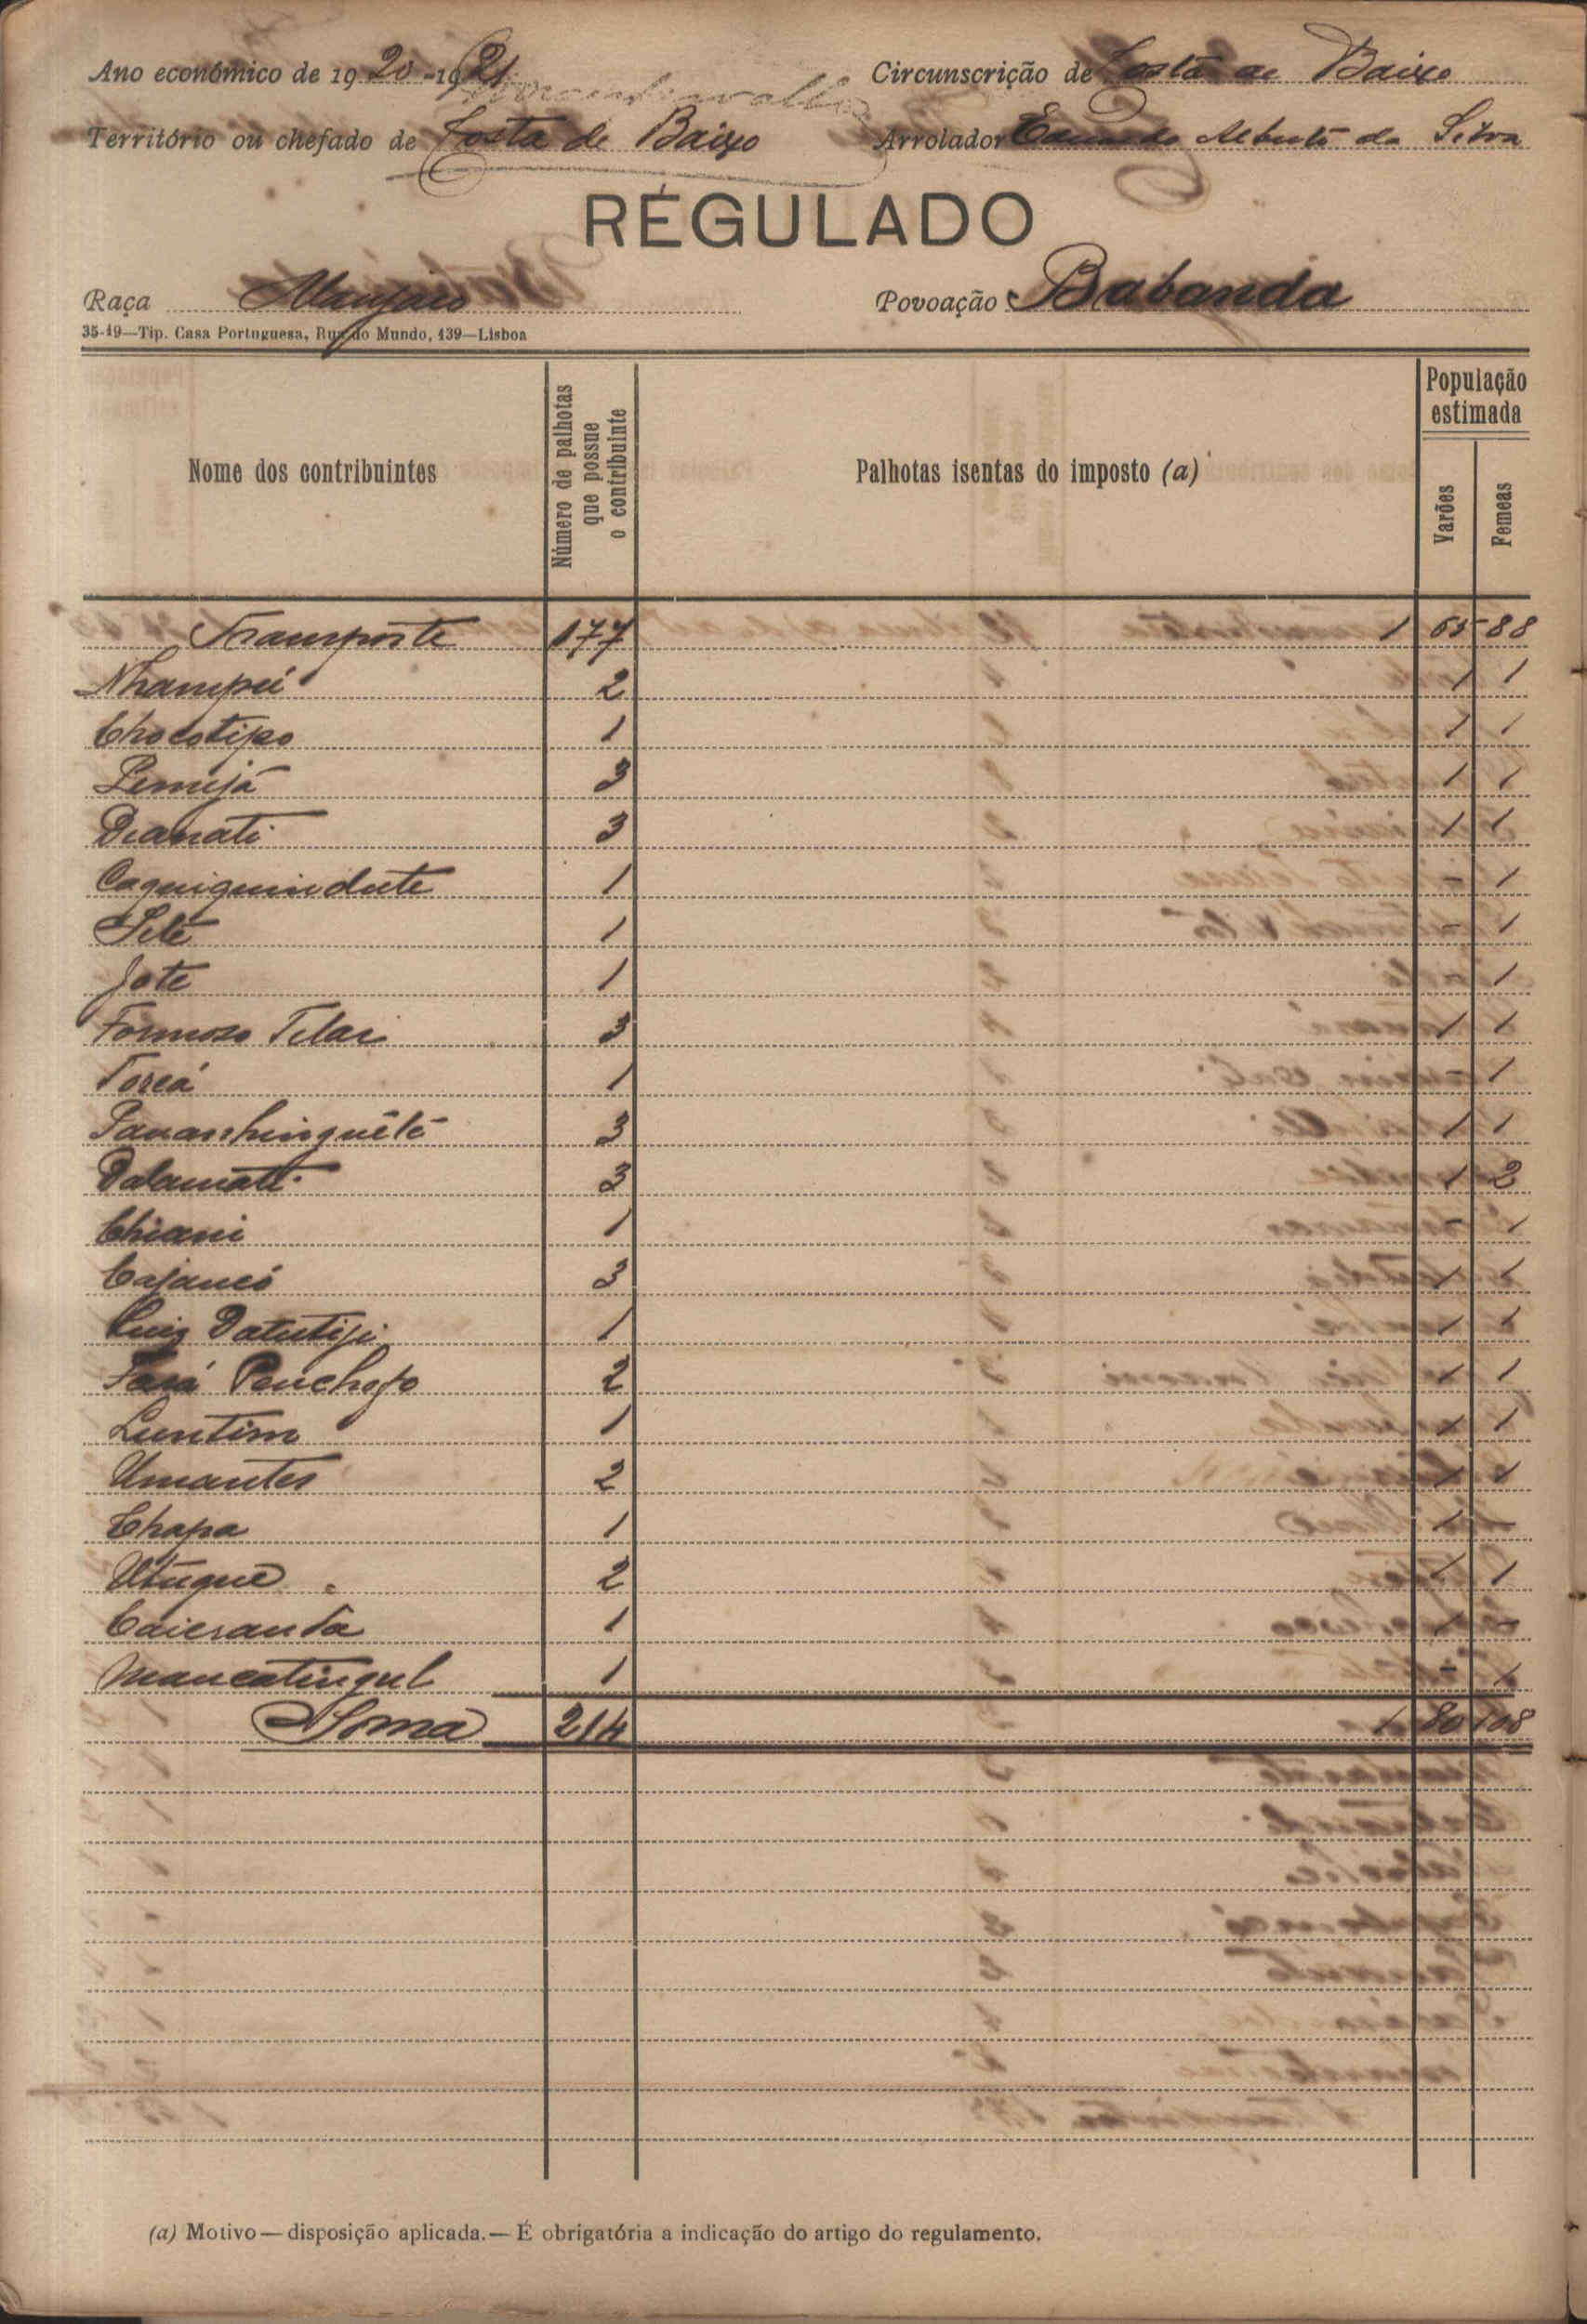 Ano económico de 1920-1921 Circunscrição de Costa de Baixo
Território ou chefado de Costa de Baixo Arrolador Eduardo Alberto da Silva
RÉGULADO
Raça Manjaco Povoação Babanda
35-19—Tip. Casa Portuguesa, Rua do Mundo, 139—Lisboa
Nome dos contribuintes Número de palhotas que possue o contribuinte Palhotas isentas do imposto (a) População estimada Varões Femeas
Transporte 177 1 65 88
Nhampú 2 1 1
Chocotipo 1 1 1
Pemijá 3 1 1
Dianati 3 1 1
Caquiguindute 1 - 1
Selé 1 - 1
Jote 1 - 1
Formoso Tilai 3 1 1
Torcá 1 - 1
3 1 1
Dalamate 3 1 2
Chiani 1 - 1
Cajancó 3 1 1
Luiz Datutiji 1 1 1
Penchopo 2 1 1
Luntim 1 1 1
Umantes 2 1 1
Chapa 1 1 -
Utuque 2 1 1
Caiesanta 1 1 -
Mancatingul 1 - 1
Soma 214 1 80 108
(a) Motivo—disposição aplicada.—É obrigatória a indicação do artigo do regulamento.